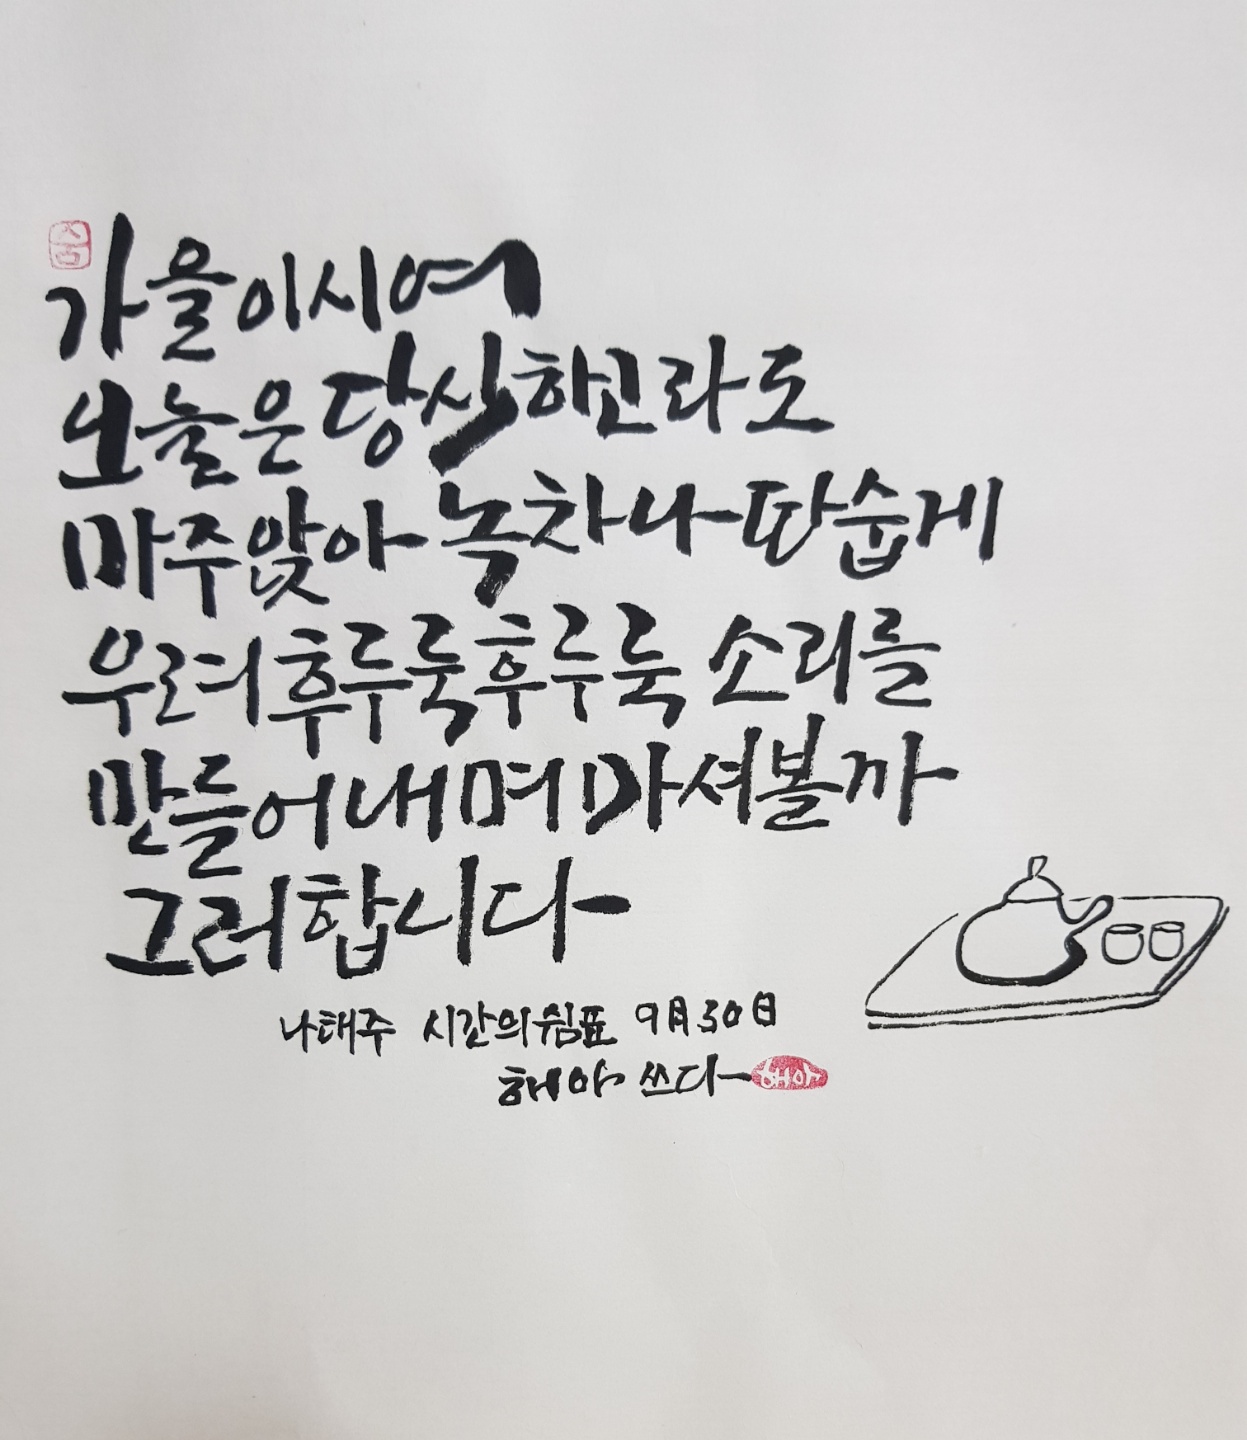 가을이시여
오늘은 당신하고라도
마주앉아 녹차나 따숩게
우려 후루룩 후루룩 소리를
만들어내며 마셔볼까
그러합니다
나태주 시간의쉼표 9月30日
해야 쓰다 해야